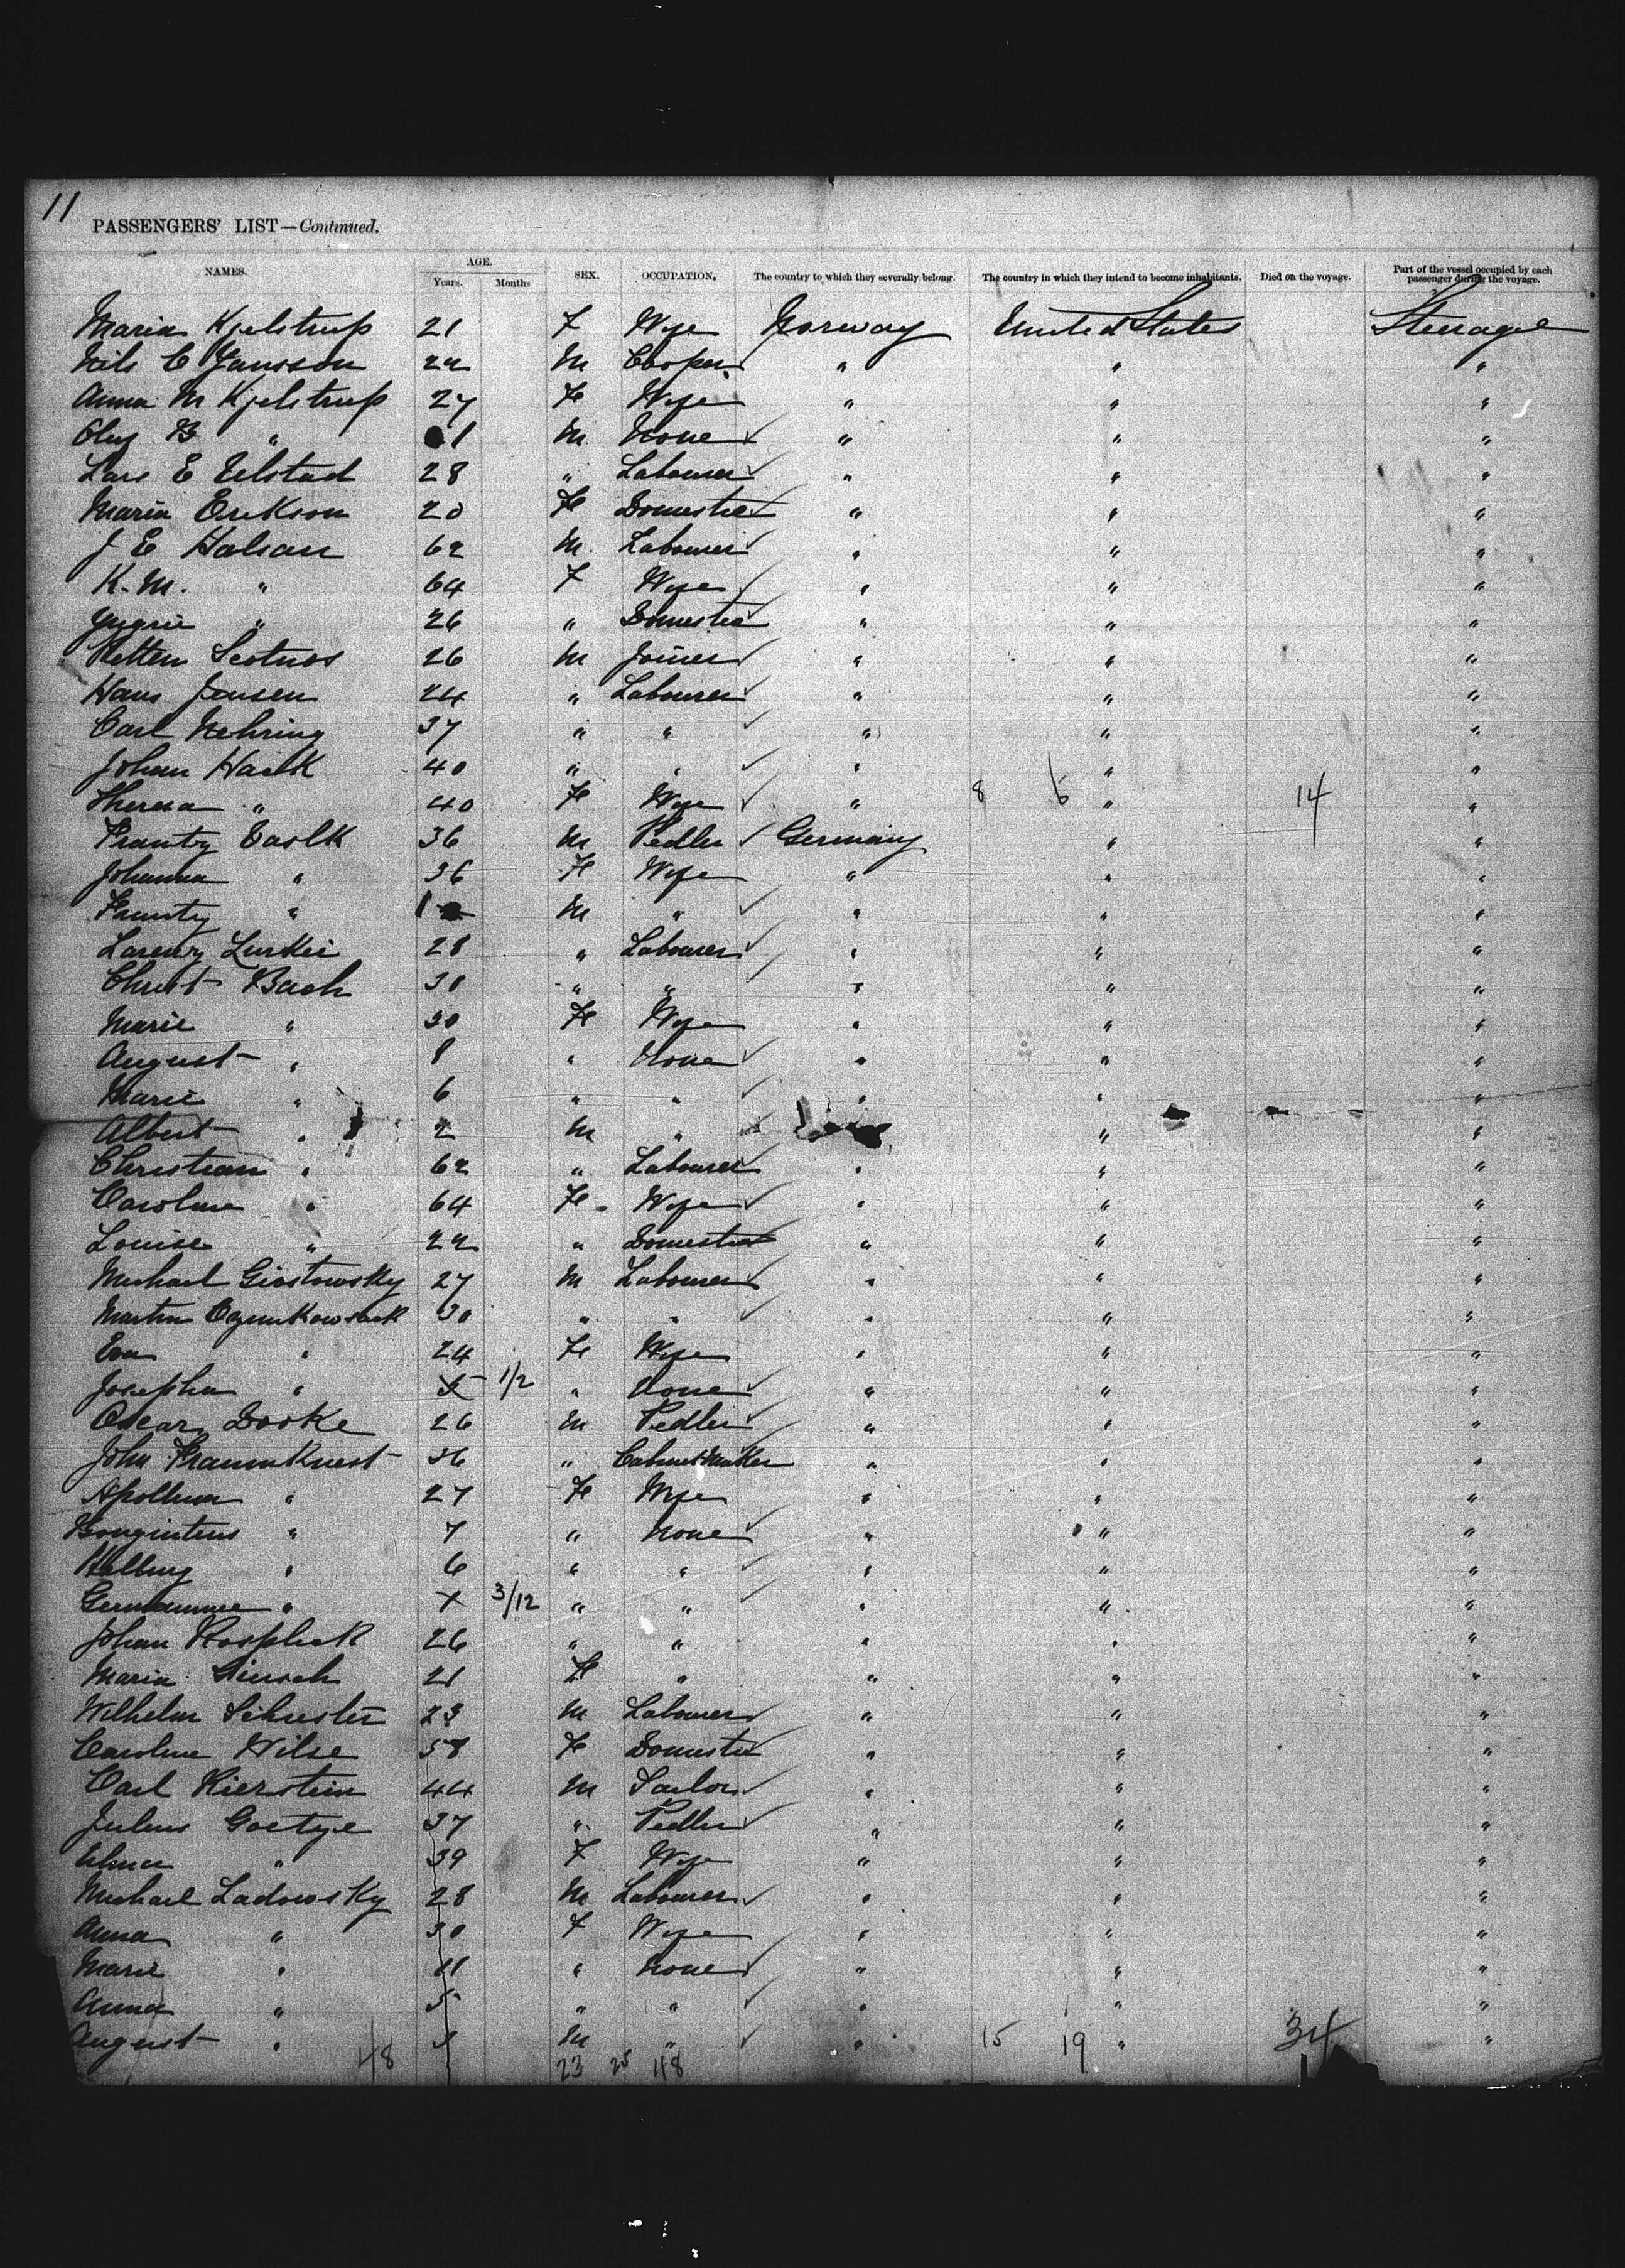 11
PASSENGERS' LIST—Continued.
NAMES. AGE. Years. Months SEX. OCCUPATION. The country to which they severally belong. The country in which they intend to become inhabitants. Died on the voyage. Part of the vessel occupied by each passenger during the voyage.
Maria Kjelstrup 21 F Wife Norway United States Steerage
Nils C Jansson 22 M Cooper " " "
Anna M Kjelstrup 27 F Wife " " "
Oluf B " 1 M None " " "
Lars E Ulstad 28 " Labourer " " "
Maria Erikson 20 F Domestic " " "
J E Halsan 62 M Labourer " " "
K. M. " 64 F Wife " " "
" 26 " Domestic " " "
26 M Joiner " " "
Hans Jensen 24 " Labourer " " "
Carl Nehring 37 " " " " "
Johan Hack 40 " " " " "
Theresa " 40 F Wife " 8 6 " 14 "
36 M Pedler Germany " "
Johanna " 36 F Wife " " "
" M " " " "
28 " Labourer " " "
Christ Bach 30 " " " " "
Marie " 30 F Wife " " "
August " 8 " None " " "
Marie " 6 " " " " "
Albert " 2 M " " " "
Christian " 62 " Labourer " " "
Caroline " 64 F Wife " " "
Louise " 22 " Domestic " " "
Michael Giostowsky 27 M Labourer " " "
Martin 30 " " " " "
Eva " 24 F Wife " " "
Josepha " 1/2 " None " " "
Oscar Dooke 26 M Pedler " " "
John 36 " Cabinet Maker " " "
" 27 F Wife " " "
" 7 " None " " "
" 6 " " " " "
" 3/12 " " " " "
Johan 26 " " " " "
Maria Hirsch 21 F " " " "
Wilhelm Schuster 23 M Labourer " " "
Caroline Wilse 58 F Domestic " " "
Carl Hierstein 44 M Tailor " " "
Julius Goetze 37 " Pedler " " "
" 39 F Wife " " "
Michael Ladowsky 28 M Labourer " " "
Anna " 30 F Wife " " "
Marie " 11 " None " " "
Anna " 5 " " " " "
August " M " " 15 19 " 34 "
48 23 25 48